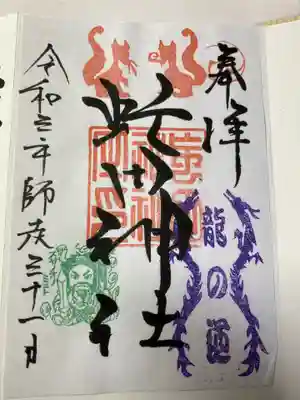 奉拝
龍の道
虻田神社
令和三年師走三十一日